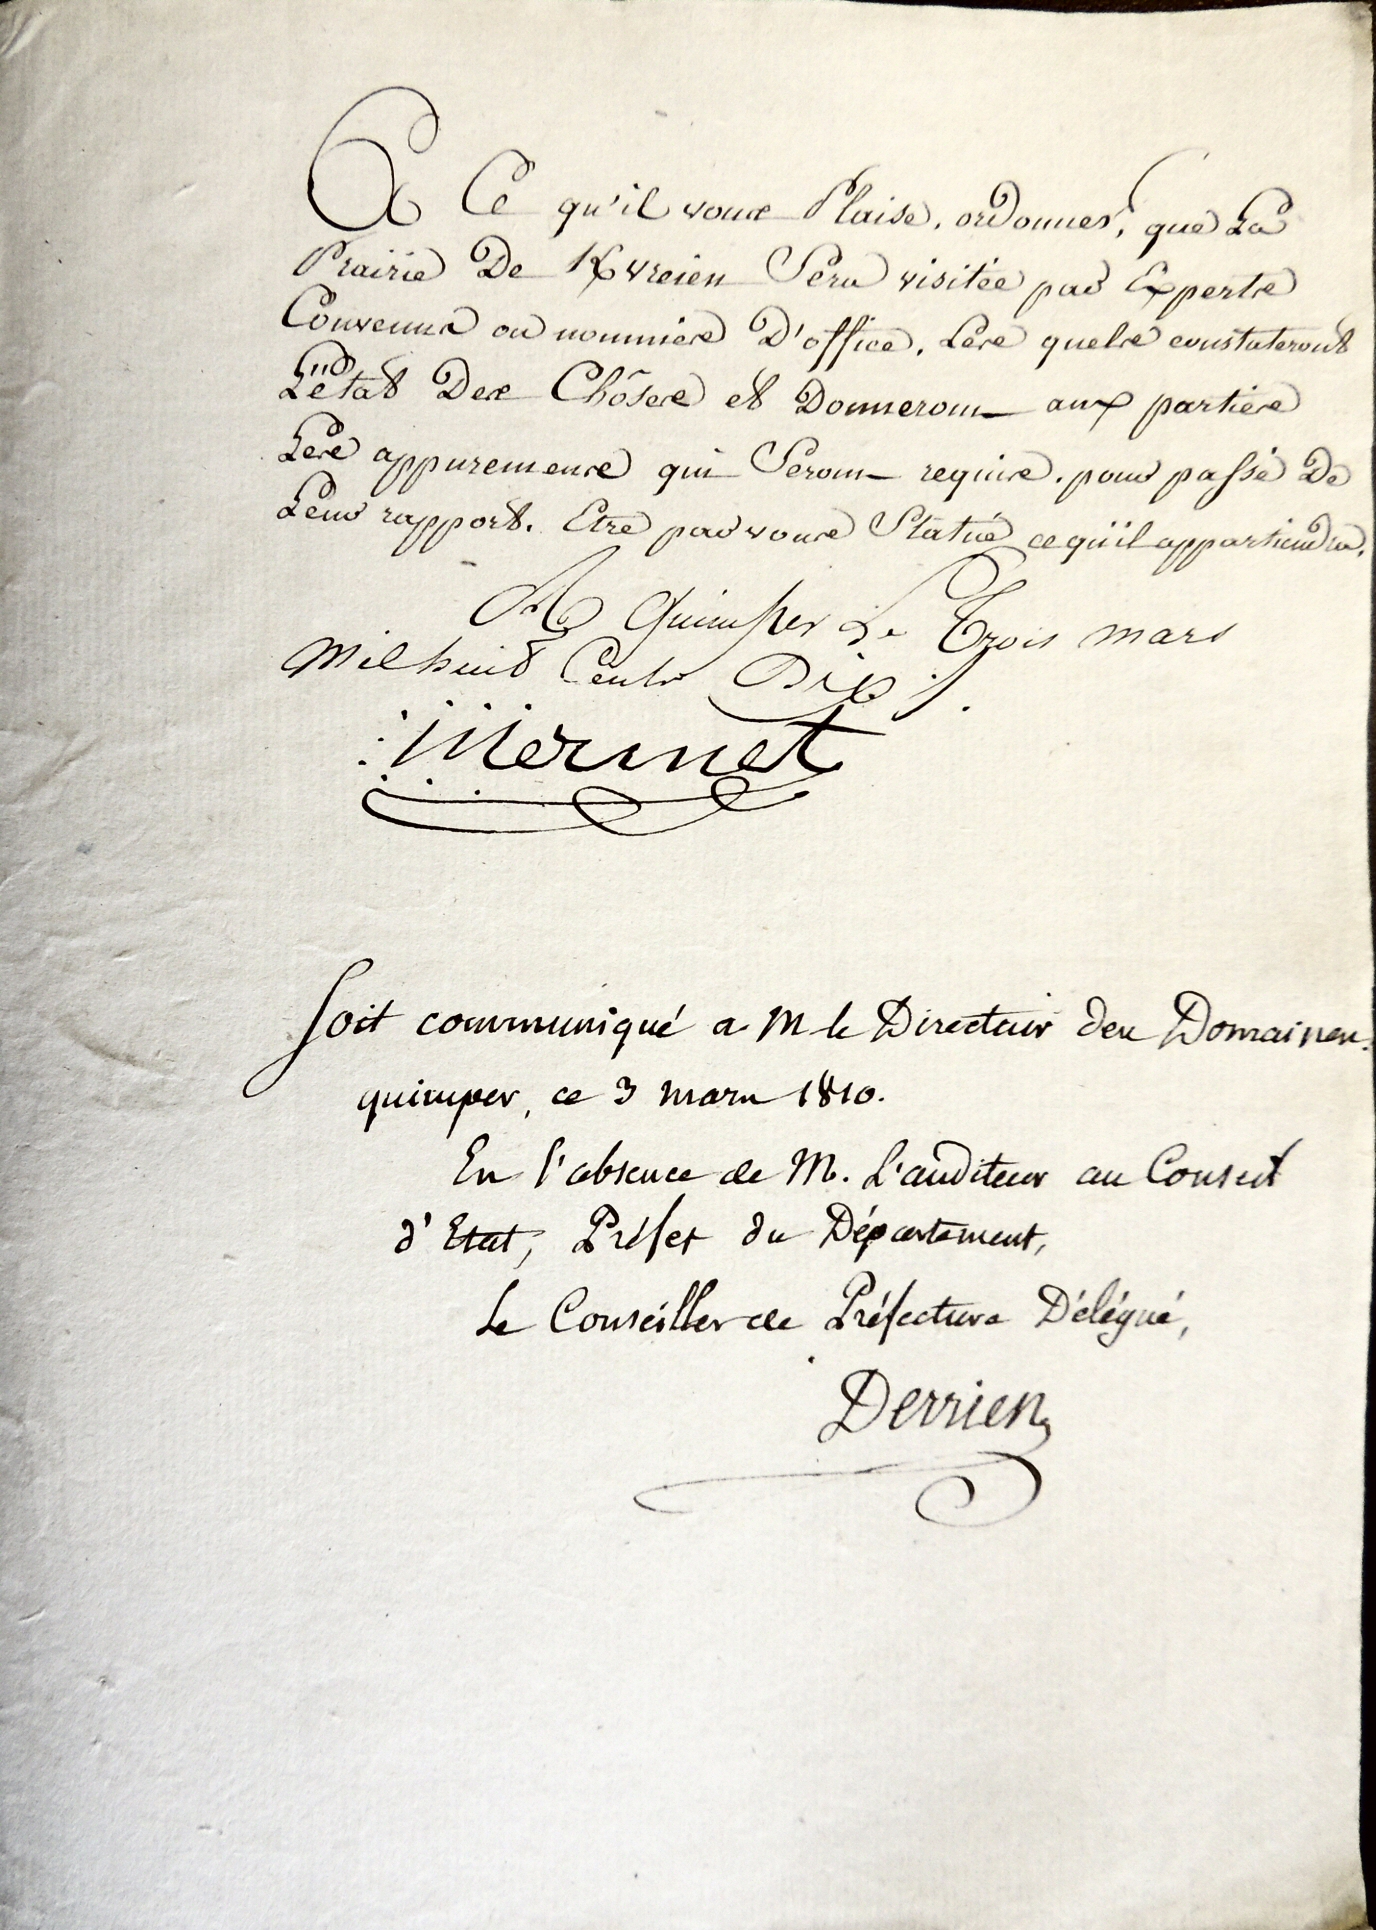 A Ce qu'il vous Plaise, ordonner, que La
Prairie De Kvreien Sera visitée par Experts
Convenus ou nommés D'office, Les quels constateront
L'état Des Chôses et Donneront aux parties
Les appurements qui Seront requis. pour passé De
Leur rapport. Etre par vous Statué ce qu'il appartiendra.
A Quimper Le Trois mars
Mil huit Cents Dix ./.
Mermet
Soit communiqué a M le Directeur des Domaines.
quimper, ce 3 mars 1810.
En l'absence de M. L'auditeur au Conseil
d'Etat, Préfet du Département,
Le Conseiller de Préfecture Délégué,
Derrien